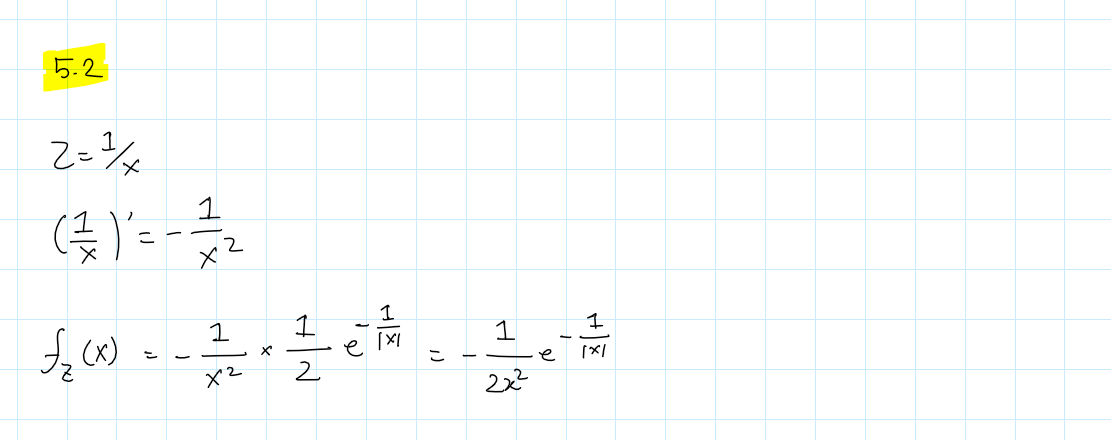 5.2
Z = 1/x
(1/x)' = - 1/x²
f_z(x) = - 1/x² × 1/2 e^(-1/|x|) = - 1/2x² e^(-1/|x|)